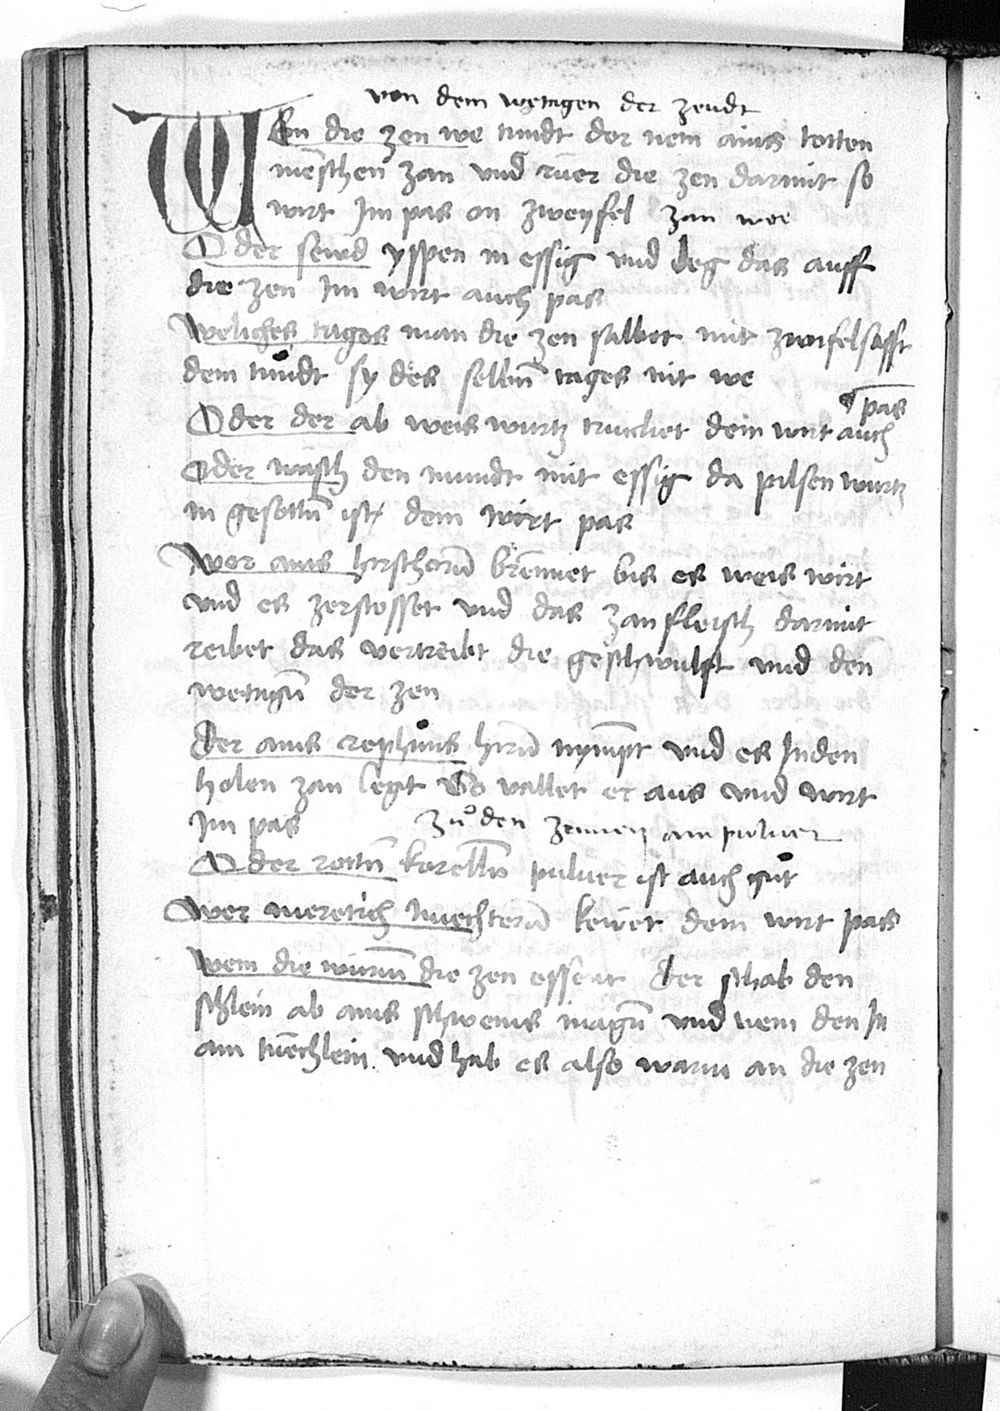 von dem wetagen der zendt
WEn die zen we tundt der nem ains totten
menschen zan und ruer die zen darmit so
wirt Im pas on zweyfel zan wee
Oder sewd yspen in essig und leg das auff
die zen Im wirt auch pas
Weliches tages man die zen salbet mit zwifelsafft
dem tundt sy des selbin tages nit we
pas
Oder der ab weis wurtz trincket dem wirt auch
Oder wasch den mundt mit essig da pilsen wurtz
in gesottin ist dem wirt pas
Wer ains hirschorn brennet bis es weis wirt
und es zerstosset und das zanfleisch darmit
reibet das vertreibt die geschwulst und den
wetagn der zen
Der ains rephuns hirn nympt und es Inden
holen zan legt So vallet er aus und wirt
Im pas zu den zennen ain pulver
Oder rottn korelln pulver ist auch gut
Wer meretich nuechtern kewet dem wirt pas
Wem die wurm die zen essent der schab den
schleim ab ains schweins magn und nem den In
ain tuechlein und hab es also warm an die zen